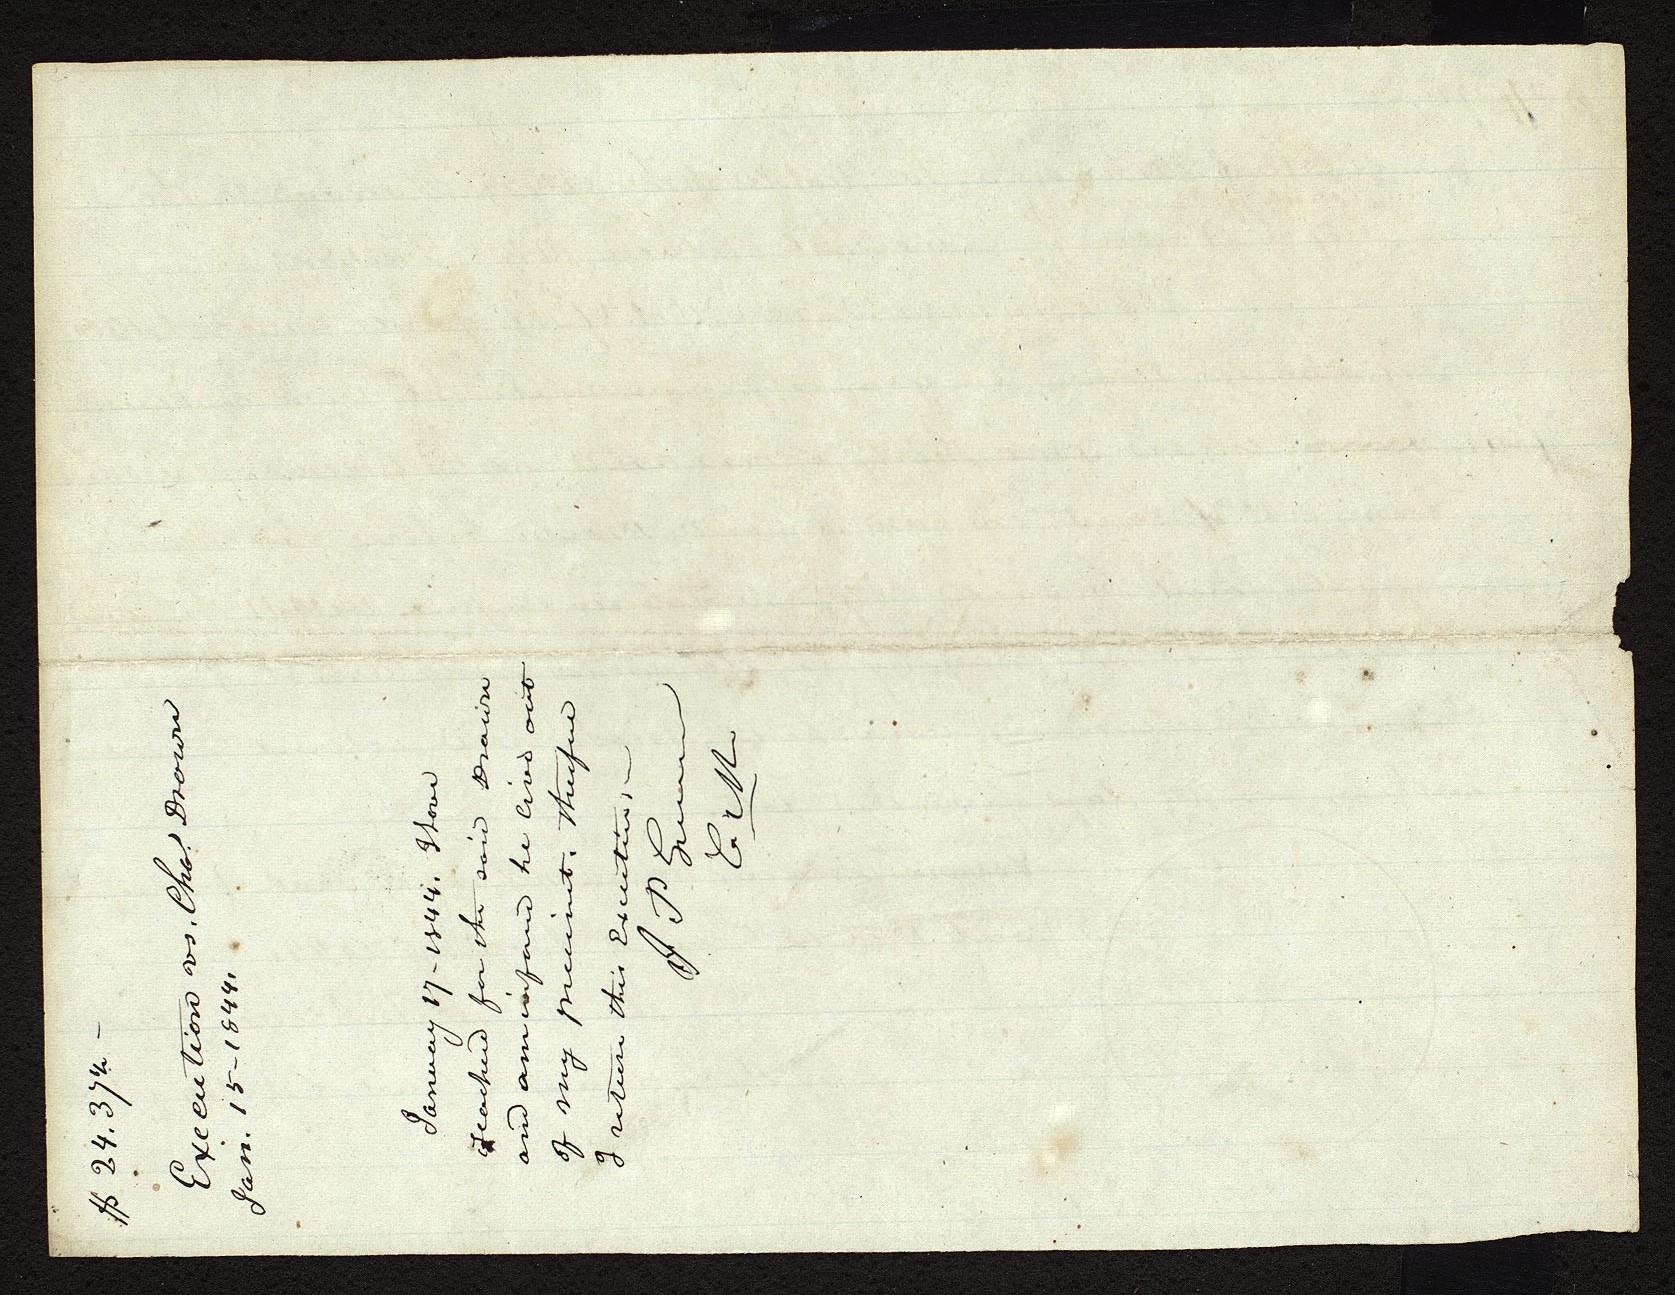 $24.37½ –
Execution vs. Chas. Drown
Jan. 15 – 1844.
January 17 – 1844. I have
searched for the said Drown
and am informd he lives out
of my precinct. Therfore
I return this Execution, –
P Green